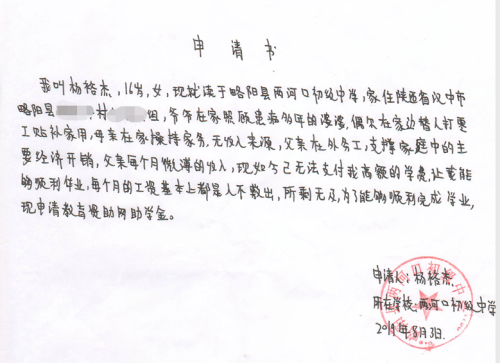 申请书
我叫杨格杰，16岁，女，现就读于略阳县两河口初级中学，家住陕西省汉中市
略阳县 村 组，爷爷在家照顾患病多年的婆婆，偶尔在家边替人打零
工贴补家用，母亲在家操持家务，无收入来源，父亲在外务工，支撑家庭中的主
要经济开销，父亲每个月微薄的收入，现如今已无法支付我高额的学费，让我能
够顺利毕业，每个月的工资基本上都是入不敷出，所剩无几，为了能够顺利完成学业，
现申请教育援助网助学金。
申请人：杨格杰
所在学校：两河口初级中学
2019年8月3日.